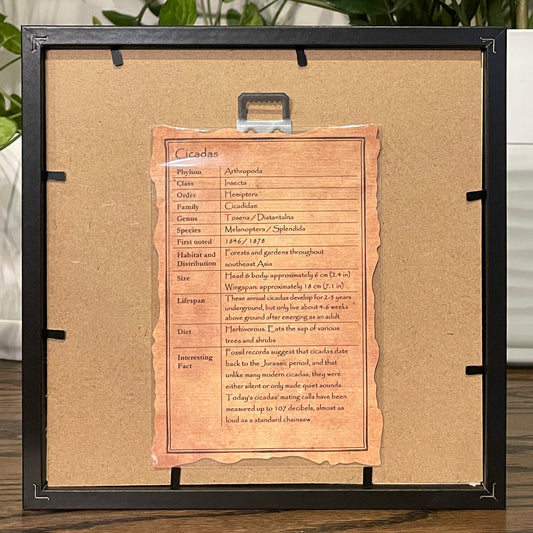 Cicadas
Phylum Arthropoda
Class Insecta
Order Hemiptera
Family Cicadidae
Genus Tosena / Distantalna
Species Melanoptera / Splendida
First noted 1846 / 1878
Habitat and Forests and gardens throughout
Distribution southeast Asia
Size Head & body: approximately 6 cm (2.4 in)
Wingspan: approximately 18 cm (7.1 in)
Lifespan These annual cicadas develop for 2-5 years
underground, but only live about 4-6 weeks
above ground after emerging as an adult
Diet Herbivorous. Eats the sap of various
trees and shrubs
Interesting Fossil records suggest that cicadas date
Fact back to the Jurassic period, and that
unlike many modern cicadas, they were
either silent or only made quiet sounds.
Today's cicadas' mating calls have been
measured up to 107 decibels, almost as
loud as a standard chainsaw